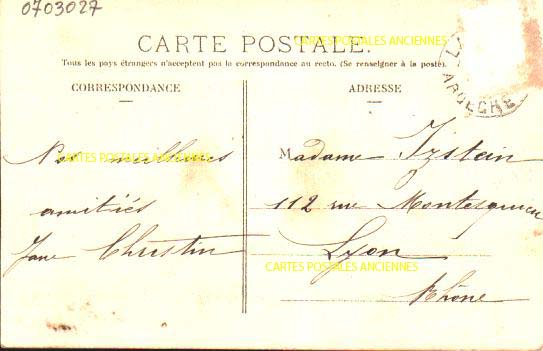 0703027
CARTE POSTALE.
CARTES POSTALES ANCIENNES
Tous les pays étrangers n'acceptent pas la correspondance au recto. (Se renseigner à la poste).
CORRESPONDANCE
ADRESSE
ARDECHE
CARTES POSTALES ANCIENNES
meilleures
amitiés
Christin
Madame Izstein
112 rue Montesquieu
Lyon
CARTES POSTALES ANCIENNES
Rhône